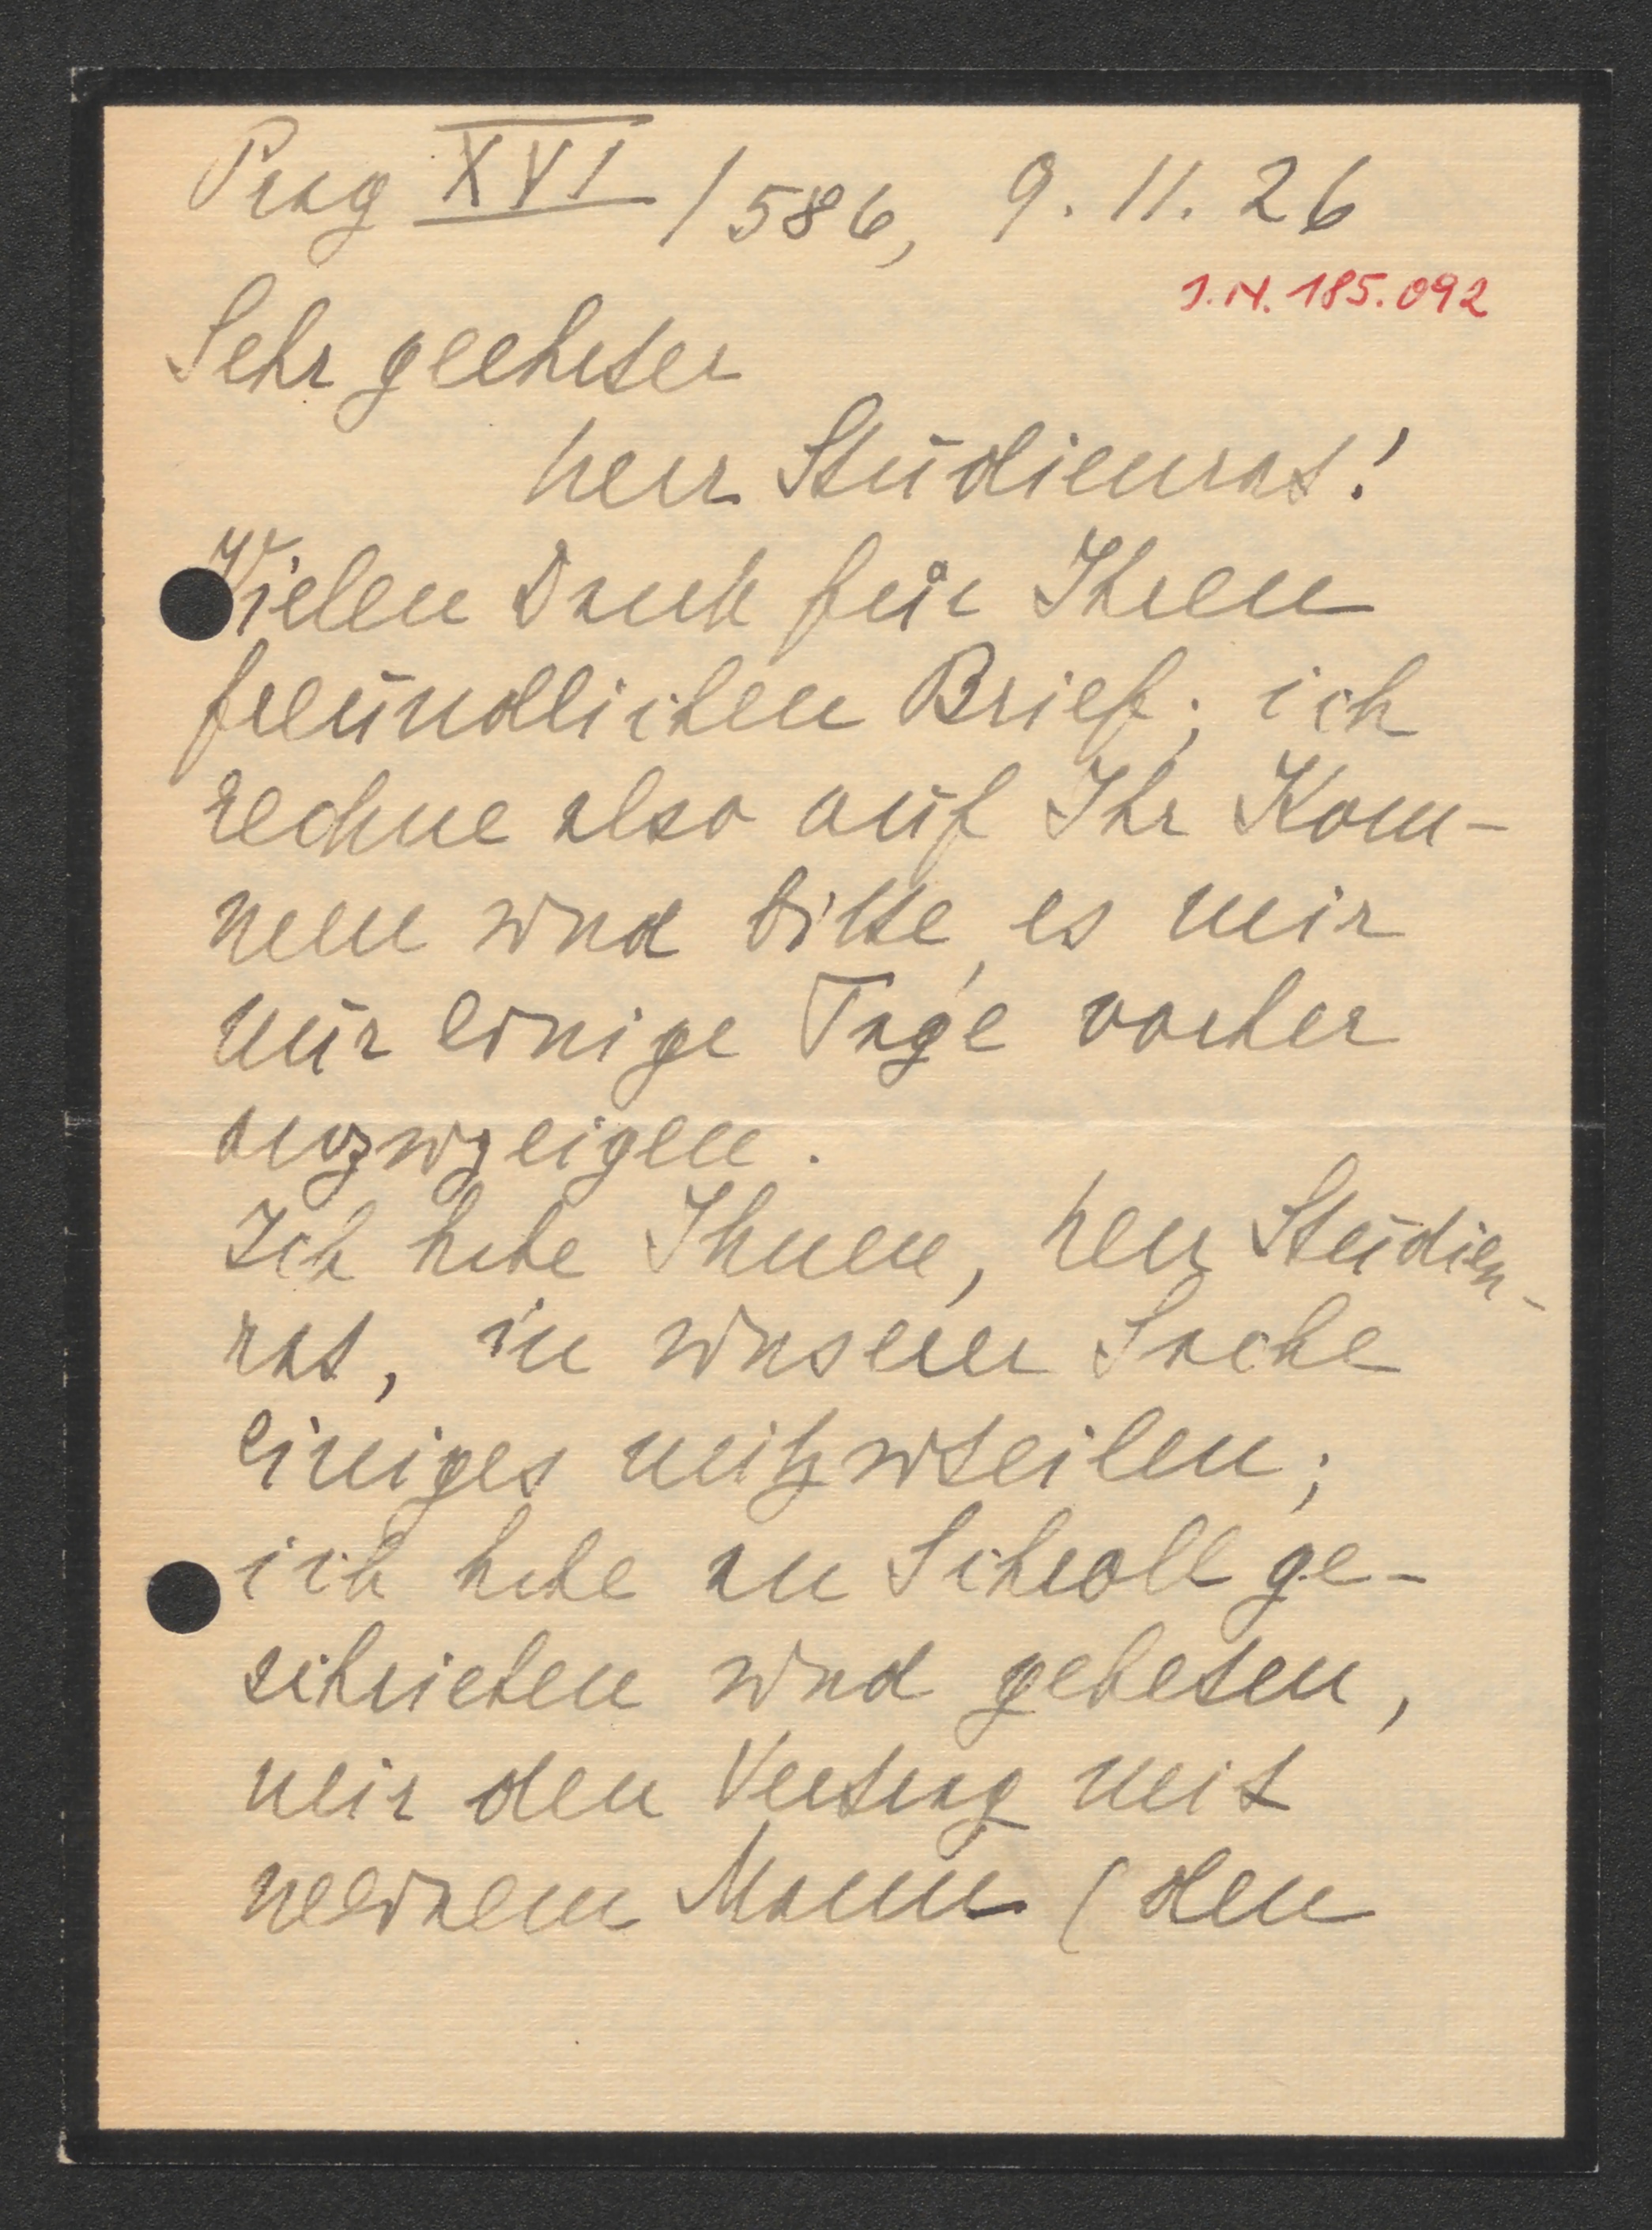 Prag XVI / 586, 9. 11. 26
I.N. 185.092
Sehr geehrter
Herr Studienrat!
Vielen Dank für Ihren
freundlichen Brief; ich
rechne also auf Ihr Kom-
men und bitte, es mir
nur einige Tage vorher
anzuzeigen.
Ich habe Ihnen, Herr Studien-
rat, in unserer Sache
einiges mitzuteilen;
ich habe an Schroll ge-
schrieben und gebeten,
mir den Vertrag mit
meinem Mann (den